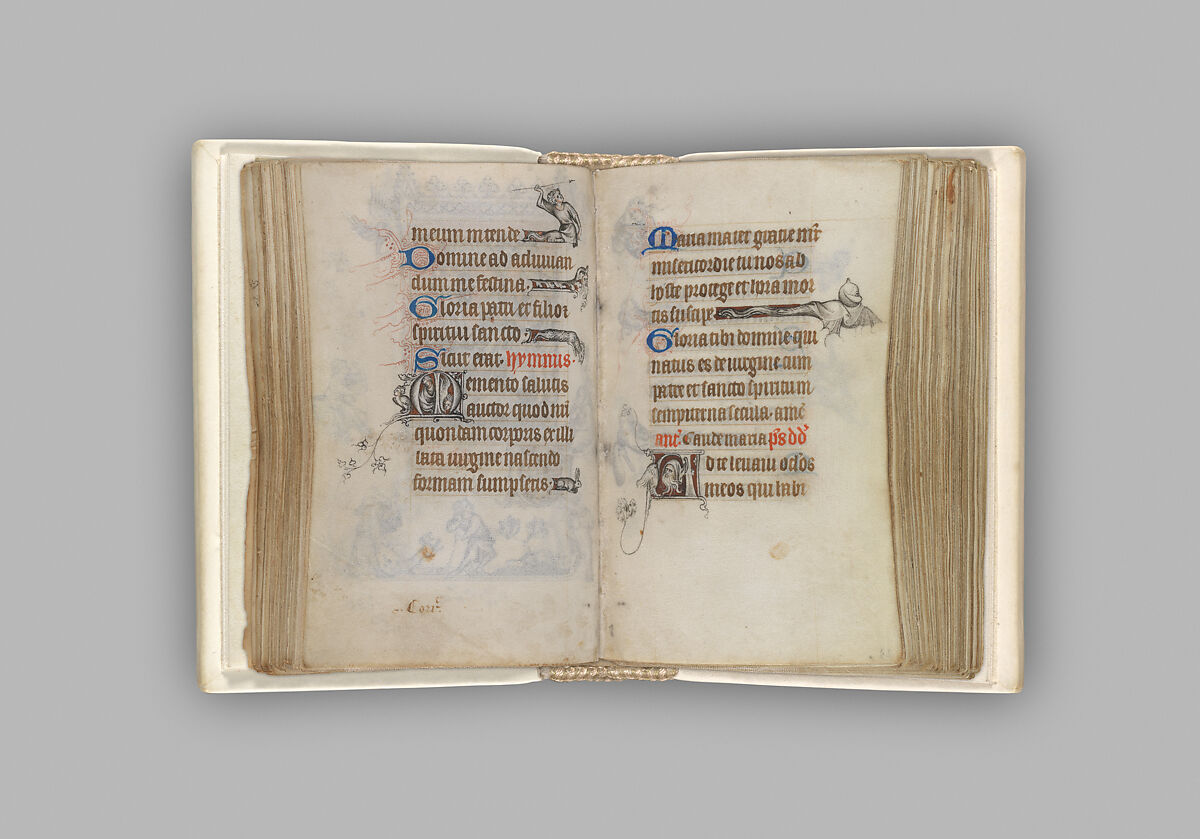 meum intende
Domine ad adiuuan
dum me festina.
Gloria patri et filio i
spiritui sancto.
Sicut erat. hymnus.
Memento salutis
auctor quod nr̄i
quondam corporis ex illi
bata uirgine nascendo
formam sumpseris.
Cori
Maria mater gratie mr̄
misericordie tu nos ab
hoste protege et hora mor
tis suscipe.
Gloria tibi domine qui
natus es de uirgine cum
patre et sancto spiritum
sempiterna secula. amē
anṫ. Gaude maria p̄s dd̄
Ad te leuaui oclos
meos qui habi